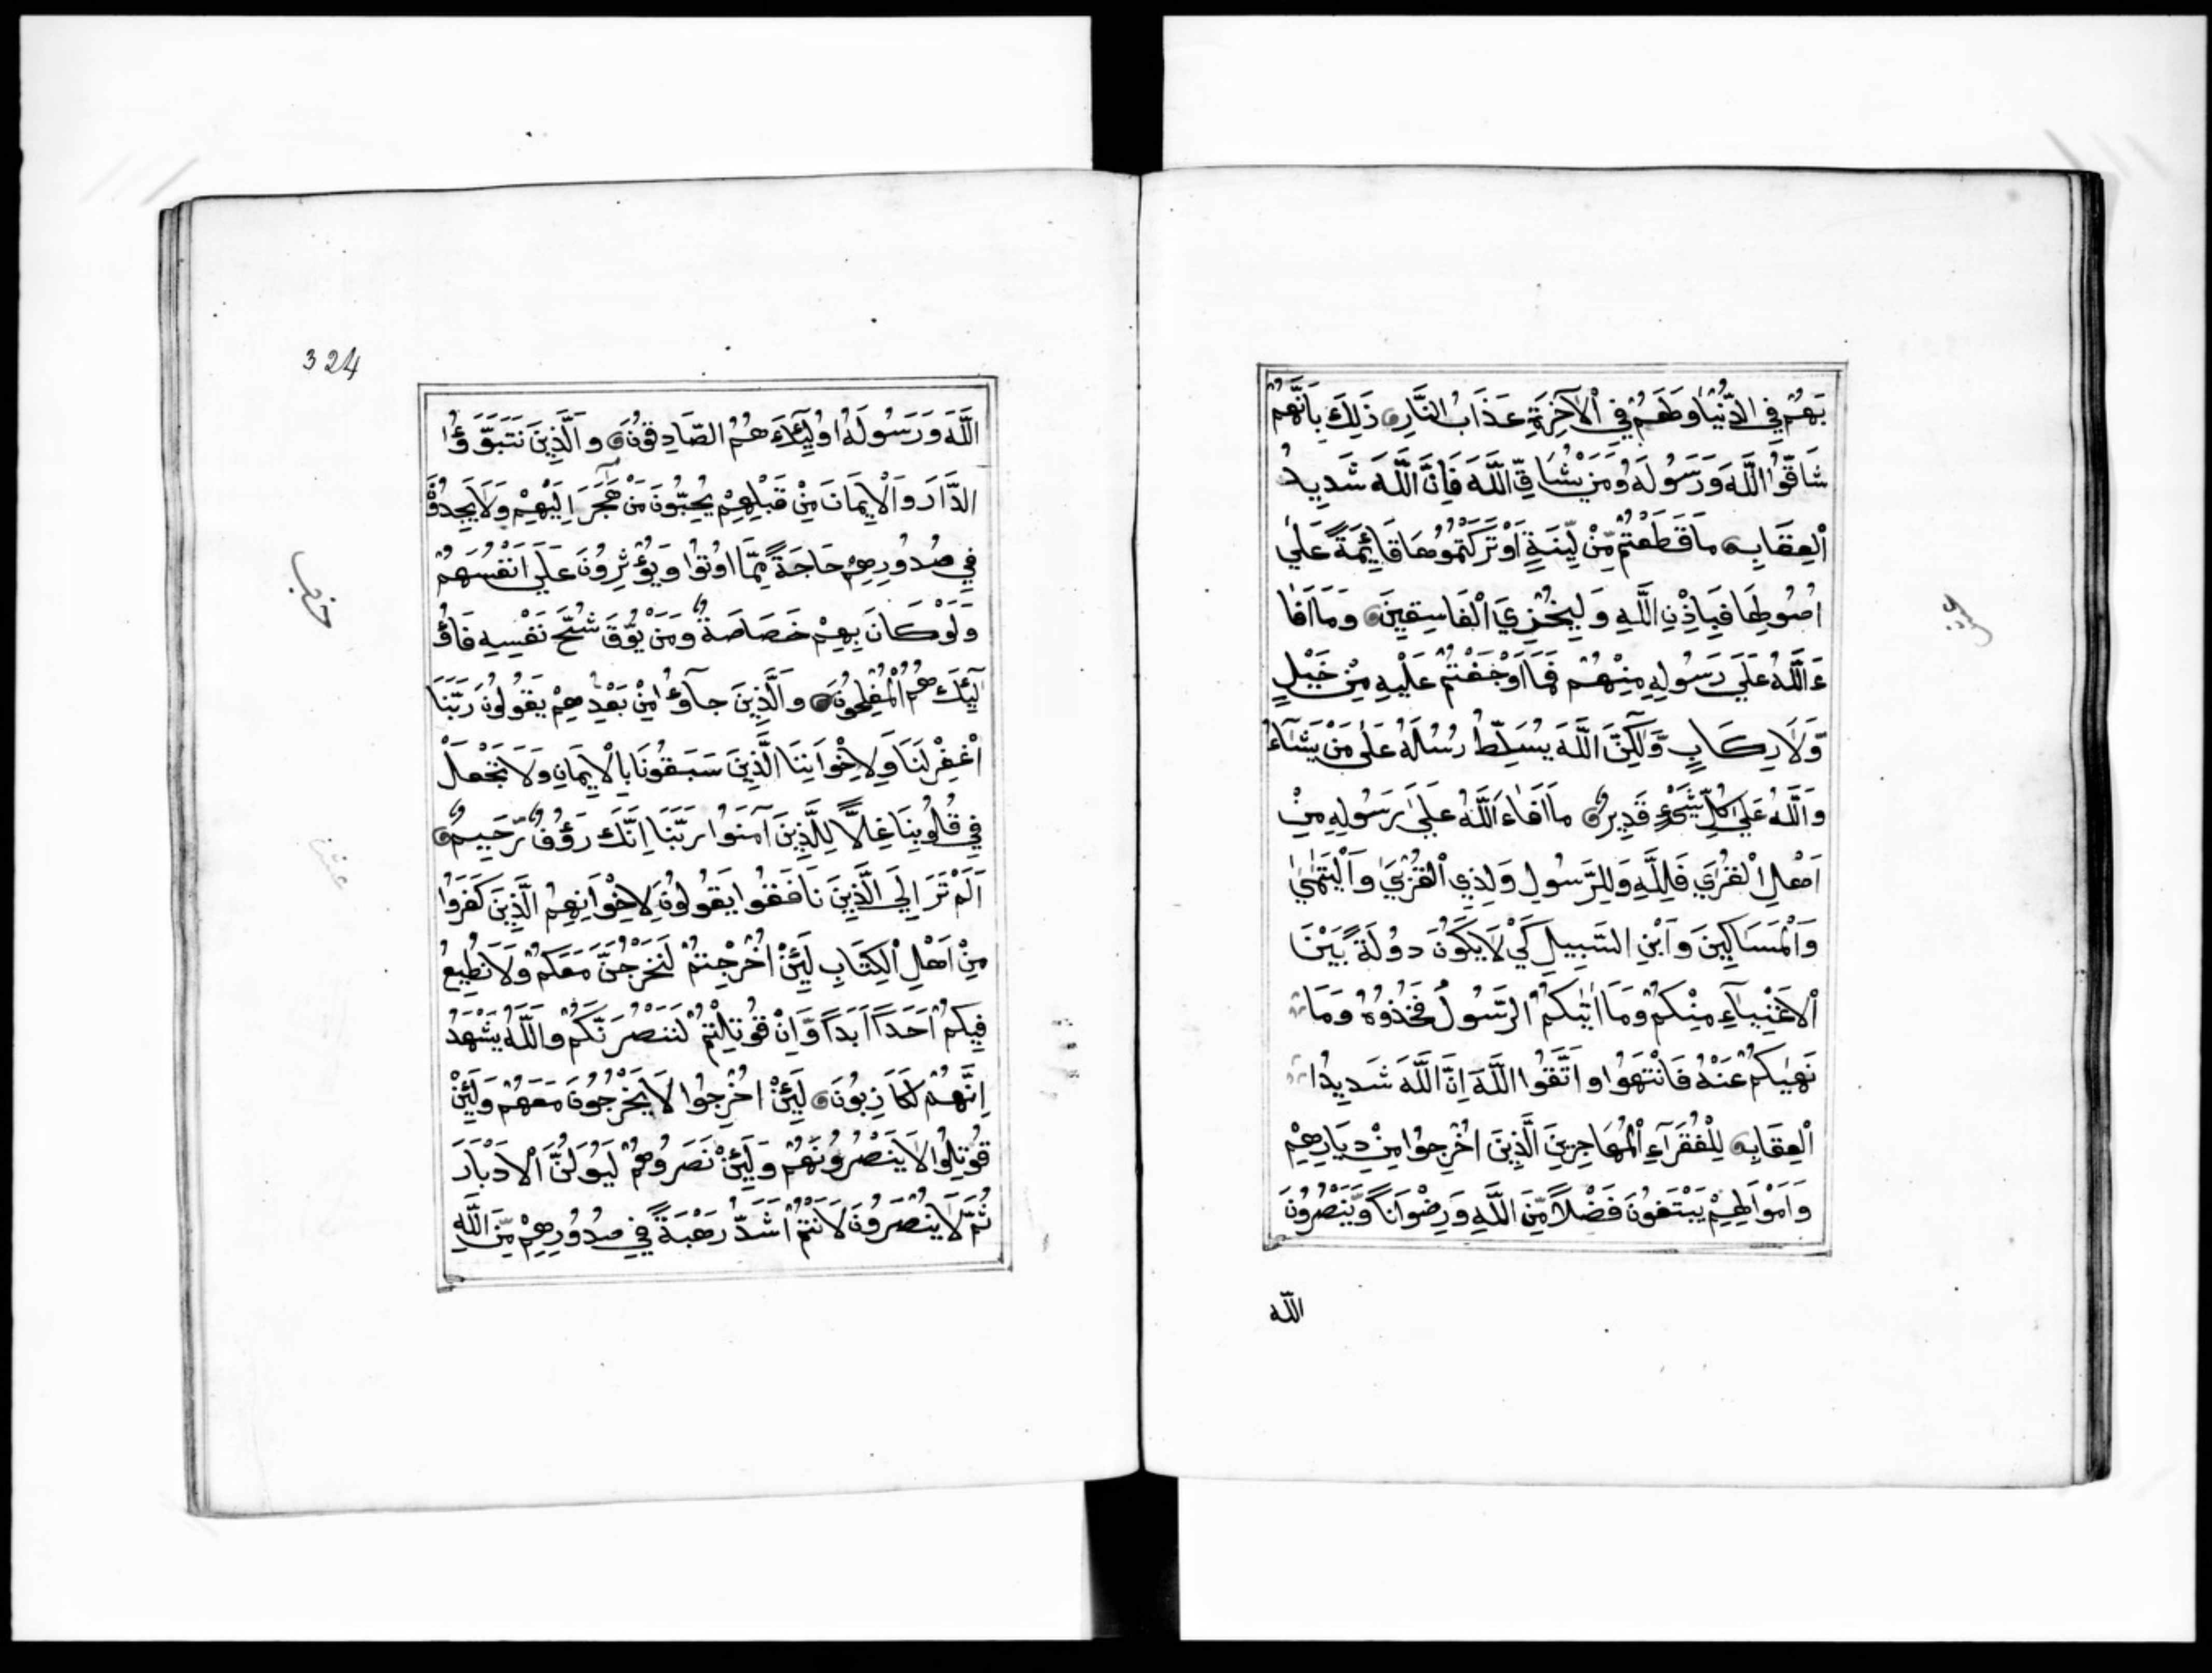 بَهُمْ فِي الدُّنْيَا وَلَهُمْ فِي الْآخِرَةِ عَذَابُ النَّارِ ذَلِكَ بِأَنَّهُمْ
شَاقُّوا اللَّهَ وَرَسُولَهُ وَمَنْ يُشَاقِّ اللَّهَ فَإِنَّ اللَّهَ شَدِيدُ
الْعِقَابِ مَا قَطَعْتُمْ مِّنْ لِّينَةٍ أَوْ تَرَكْتُمُوهَا قَائِمَةً عَلَى
أُصُولِهَا فَبِإِذْنِ اللَّهِ وَلِيُخْزِيَ الْفَاسِقِينَ وَمَا أَفَا
ءَ اللَّهُ عَلَى رَسُولِهِ مِنْهُمْ فَمَا أَوْجَفْتُمْ عَلَيْهِ مِنْ خَيْلٍ
وَّلَا رِكَابٍ وَّلَكِنَّ اللَّهَ يُسَلِّطُ رُسُلَهُ عَلَى مَنْ يَشَاءُ
وَاللَّهُ عَلَى كُلِّ شَيْءٍ قَدِيرٌ مَا أَفَاءَ اللَّهُ عَلَى رَسُولِهِ مِنْ
أَهْلِ الْقُرَى فَلِلَّهِ وَلِلرَّسُولِ وَلِذِي الْقُرْبَى وَالْيَتٰمٰى
وَالْمَسَاكِينَ وَابْنِ السَّبِيلِ كَيْ لَا يَكُونَ دُولَةً بَيْنَ
الْأَغْنِيَاءِ مِنْكُمْ وَمَا اٰتٰيكُمُ الرَّسُولُ فَخُذُوهُ وَمَا
نَهٰيكُمْ عَنْهُ فَانْتَهُوا وَاتَّقُوا اللَّهَ إِنَّ اللَّهَ شَدِيدُ
الْعِقَابِ لِلْفُقَرَاءِ الْمُهَاجِرِينَ الَّذِينَ أُخْرِجُوا مِنْ دِيَارِهِمْ
وَأَمْوَالِهِمْ يَبْتَغُونَ فَضْلًا مِّنَ اللَّهِ وَرِضْوَانًا وَّيَنْصُرُونَ
الله
324
اللَّهَ وَرَسُولَهُ أُولَئِكَ هُمُ الصَّادِقُونَ وَالَّذِينَ تَبَوَّؤُا
الدَّارَ وَالْإِيمَانَ مِنْ قَبْلِهِمْ يُحِبُّونَ مَنْ هَاجَرَ إِلَيْهِمْ وَلَا يَجِدُونَ
فِي صُدُورِهِمْ حَاجَةً مِّمَّا أُوتُوا وَيُؤْثِرُونَ عَلَى أَنْفُسِهِمْ
وَلَوْ كَانَ بِهِمْ خَصَاصَةٌ وَمَنْ يُّوقَ شُحَّ نَفْسِهِ فَأُو
لَئِكَ هُمُ الْمُفْلِحُونَ وَالَّذِينَ جَاءُوا مِنْ بَعْدِهِمْ يَقُولُونَ رَبَّنَا
اغْفِرْ لَنَا وَلِإِخْوَانِنَا الَّذِينَ سَبَقُونَا بِالْإِيمَانِ وَلَا تَجْعَلْ
فِي قُلُوبِنَا غِلًّا لِلَّذِينَ آمَنُوا رَبَّنَا إِنَّكَ رَؤُفٌ رَّحِيمٌ
أَلَمْ تَرَ إِلَى الَّذِينَ نَافَقُوا يَقُولُونَ لِإِخْوَانِهِمُ الَّذِينَ كَفَرُوا
مِنْ أَهْلِ الْكِتَابِ لَئِنْ أُخْرِجْتُمْ لَنَخْرُجَنَّ مَعَكُمْ وَلَا نُطِيعُ
فِيكُمْ أَحَدًا أَبَدًا وَّإِنْ قُوتِلْتُمْ لَنَنْصُرَنَّكُمْ وَاللَّهُ يَشْهَدُ
إِنَّهُمْ لَكَاذِبُونَ لَئِنْ أُخْرِجُوا لَا يَخْرُجُونَ مَعَهُمْ وَلَئِنْ
قُوتِلُوا لَا يَنْصُرُونَهُمْ وَلَئِنْ نَصَرُوهُمْ لَيُوَلُّنَّ الْأَدْبَارَ
ثُمَّ لَا يُنْصَرُونَ لَأَنْتُمْ أَشَدُّ رَهْبَةً فِي صُدُورِهِمْ مِّنَ اللَّهِ